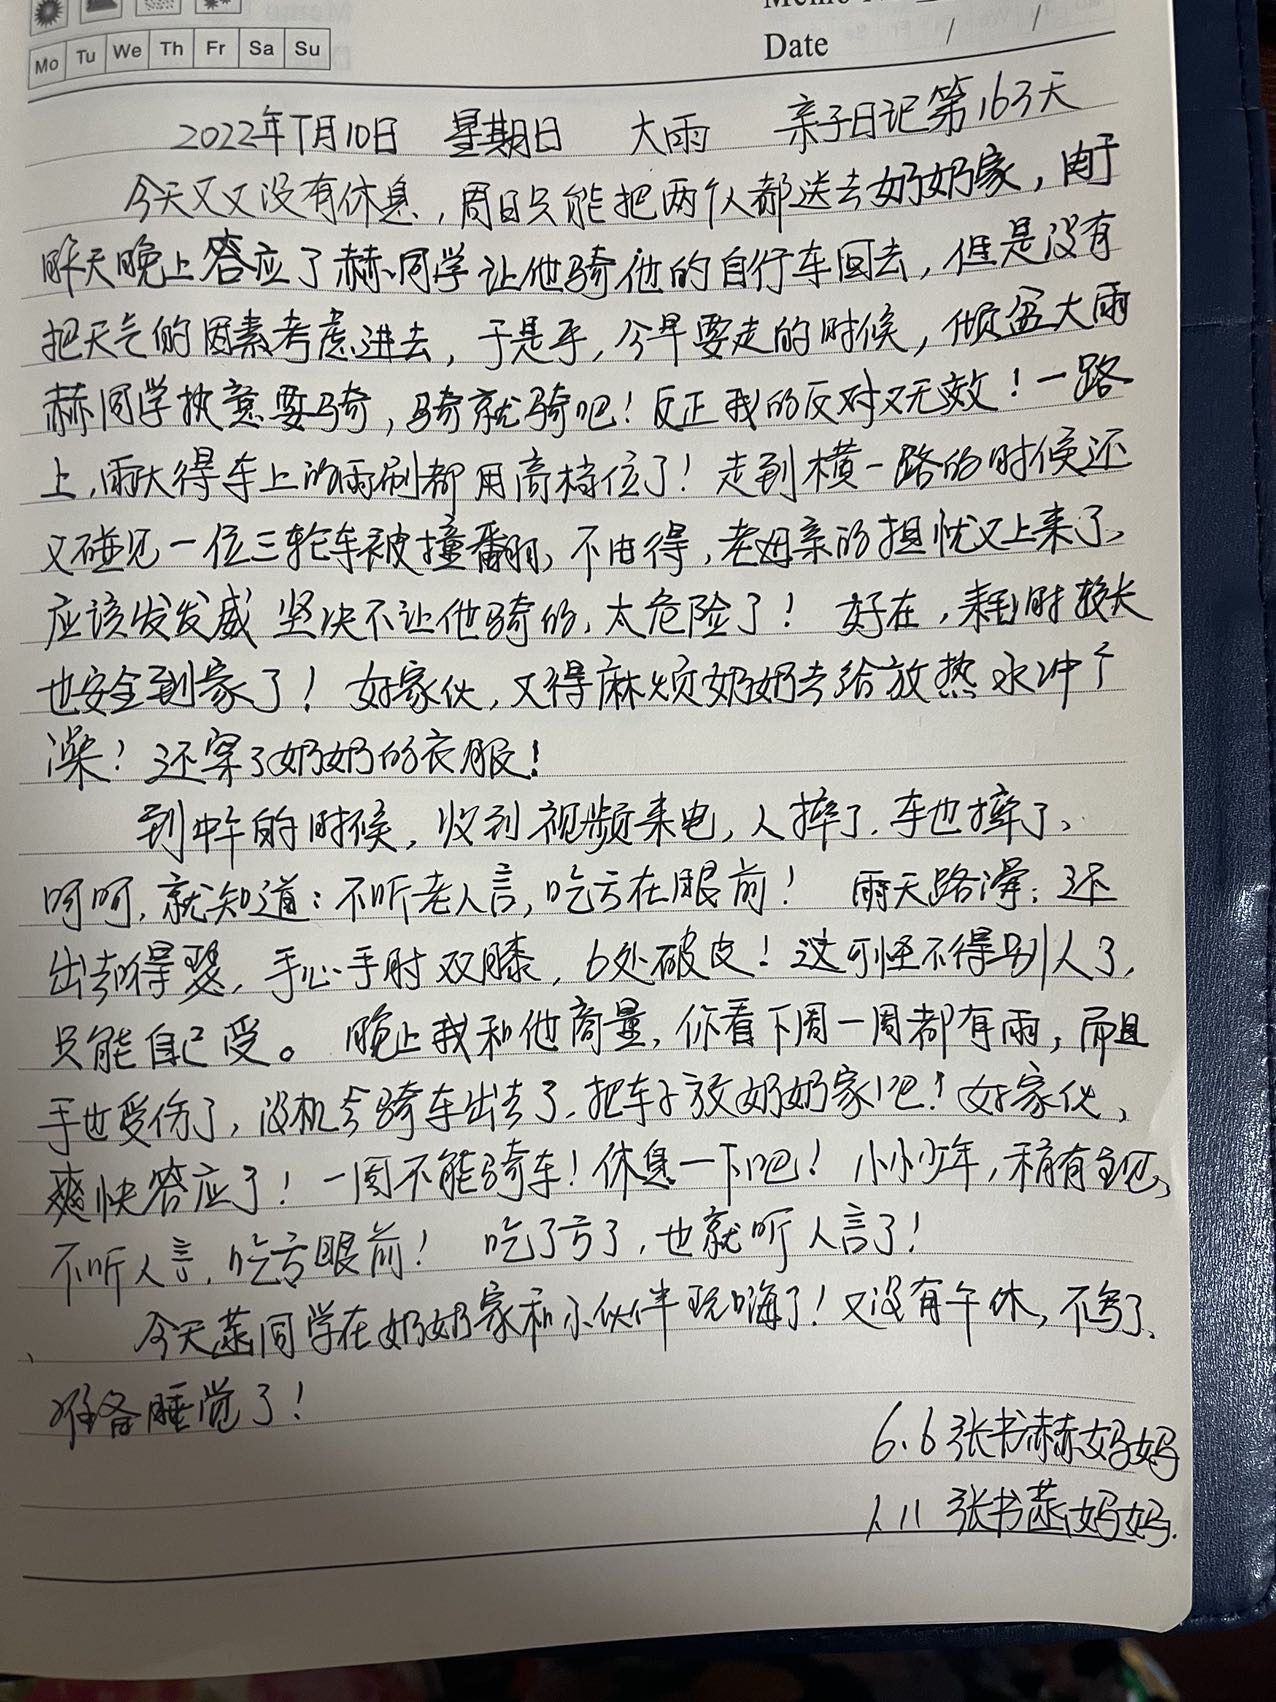 Mo Tu We Th Fr Sa Su
Date / /
2022年7月10日 星期日 大雨 亲子日记第163天
今天又又没有休息，周日只能把两个人都送去奶奶家，由于
昨天晚上答应了赫同学让他骑他的自行车回去，但是没有
把天气的因素考虑进去，于是乎，今早要走的时候，倾盆大雨
赫同学执意要骑，骑就骑吧！反正我的反对又无效！一路
上，雨大得车上的雨刷都用高档位了！走到横一路的时候还
又碰见一位三轮车被撞翻，不由得，老母亲的担忧又上来了，
应该发发威坚决不让他骑的，太危险了！好在，来到时较长
也安全到家了！好家伙，又得麻烦奶奶去给放热水冲个
澡！还穿了奶奶的衣服！
到中午的时候，收到视频来电，人摔了，车也摔了、
呵呵，就知道：不听老人言，吃亏在眼前！雨天路滑；还
出去得瑟，手心手肘双膝，6处破皮！这可怪不得别人了，
只能自己受。晚上我和他商量，你看下周一周都有雨，而且
手也受伤了，没机会骑车出去了，把车子放奶奶家吧！好家伙，
爽快答应了！一周不能骑车！休息一下吧！小小少年，稍有主见，
不听人言，吃亏眼前！吃了亏了，也就听人言了！
今天燕同学在奶奶家和小伙伴玩嗨了！又没有午休，不写了、
准备睡觉了！
6.6张书赫妈妈
1.11 张书燕妈妈.